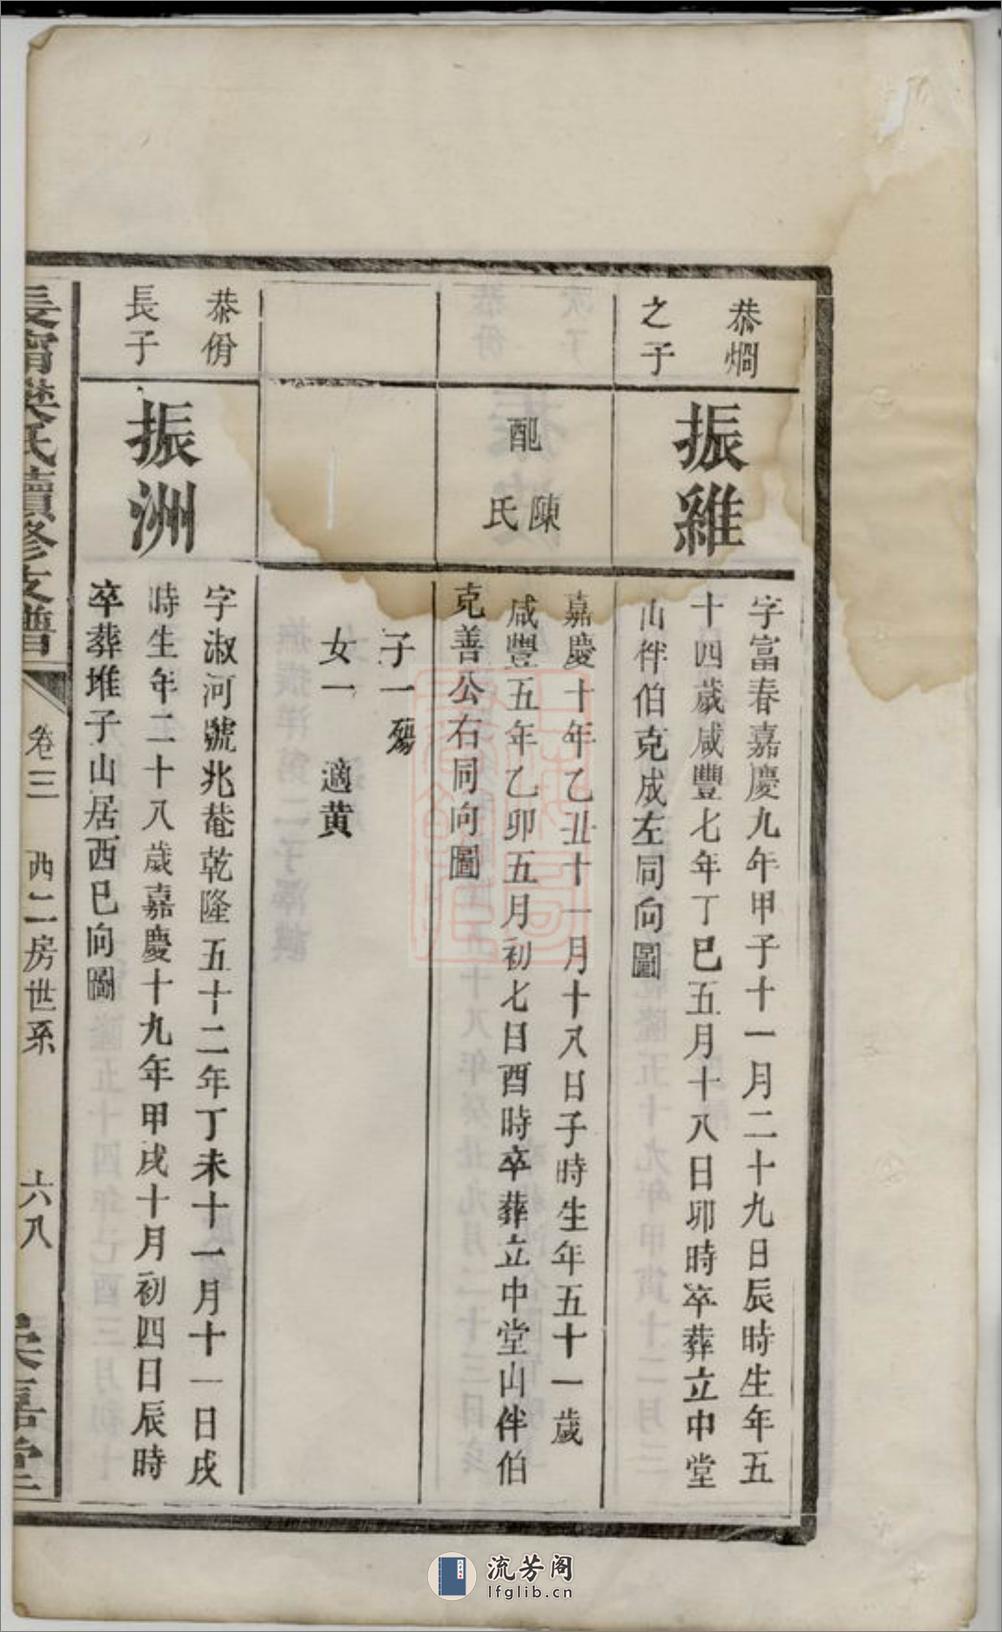 恭燗
之子
振雞
字富春嘉慶九年甲子十一月二十九日辰時生年五
十四歲咸豐七年丁巳五月十八日卯時卒葬立中堂
山袢伯克成左同向圖
配
陳氏
嘉慶十年乙丑十一月十八日子時生年五十一歲
咸豐五年乙卯五月初七日酉時卒葬立中堂山伴伯
克善公右同向圖
子一 殤
女一 適黄
恭佾
長子
振洲
字淑河號兆菴乾隆五十二年丁未十一月十一日戌
時生年二十八歲嘉慶十九年甲戌十月初四日辰時
卒葬堆子山居西巳向圖
氏續修支譜
卷三 西二房世系 六八
流芳阁
lfglib.cn